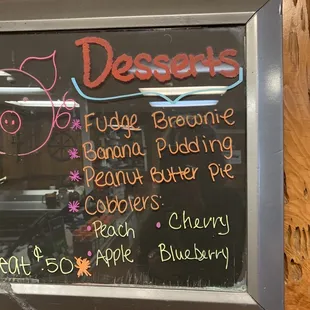 Desserts
* Fudge Brownie
* Banana Pudding
* Peanut Butter Pie
* Cobblers:
• Peach • Cherry
• Apple Blueberry
eat ¢.50